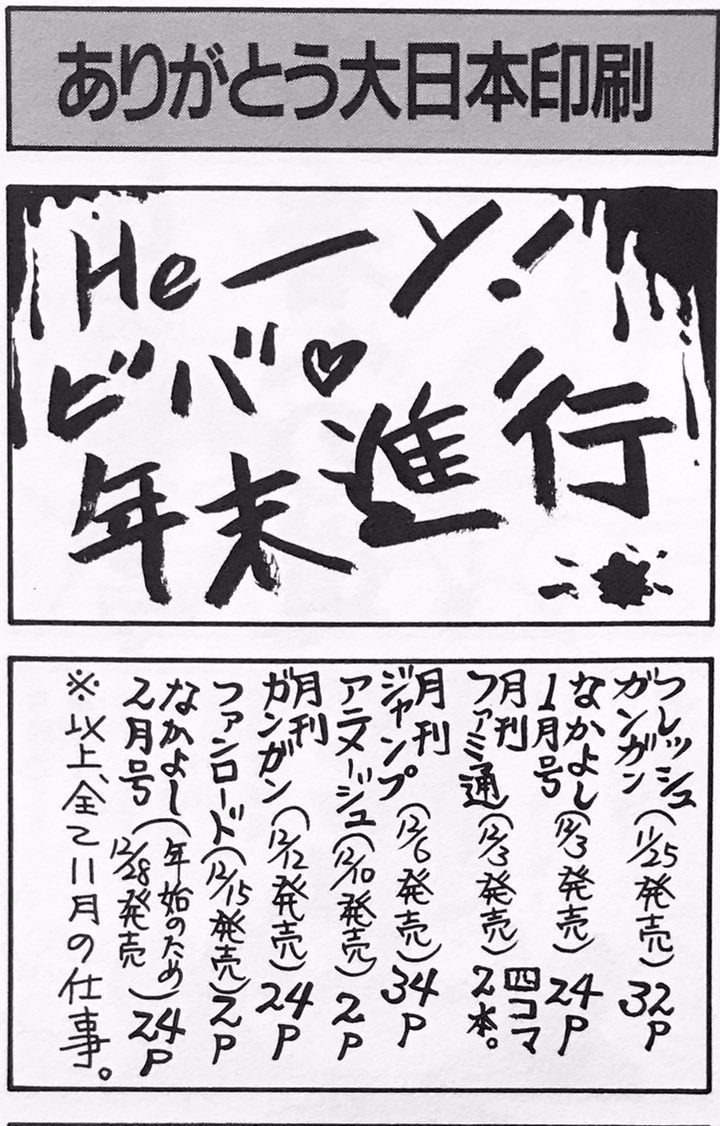 ありがとう大日本印刷
Heーイ!
ビバ♡
年末進行
フレッシュガンガン(11/25発売)32P
なかよし1月号(12/3発売)24P
月刊ファミ通(12/3発売)四コマ2本。
月刊ジャンプ(12/6発売)34P
アニメージュ(12/10発売)2P
月刊ガンガン(12/12発売)24P
ファンロード(12/15発売)2P
なかよし2月号(年始のため12/28発売)24P
※以上、全て11月の仕事。